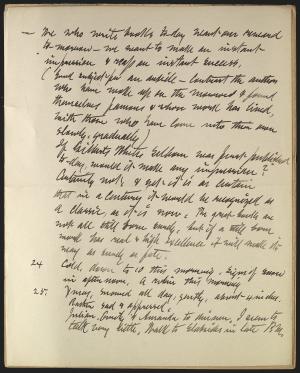 — We who write books to-day want our reward
to-morrow — we want to make an instant
impression & reap an instant success.
( Good subject for an article — contrast the authors
who have woke up in the morning & found
themselves famous & whose work has lived,
with those who have come into their own
slowly, gradually)
If Gilbert White's Selborne was first published
to-day, would it make any impression?
Certainly not, & yet it is as certain
that in a century it would be recognized as
a classic, as it is now. The great books are
not all still born surely, but if a still born
work has real & high excellence it will make its
way as surely as fate.
24 Cold, down to 10 this morning. Signs of snow
in afternoon. A robin this morning
25. Xmas, snowed all day, gently, about 4 inches.
sad &
Julian, & Amanda to dinner, I seem to
talk very little, Walk to Slabsides in late P.M.